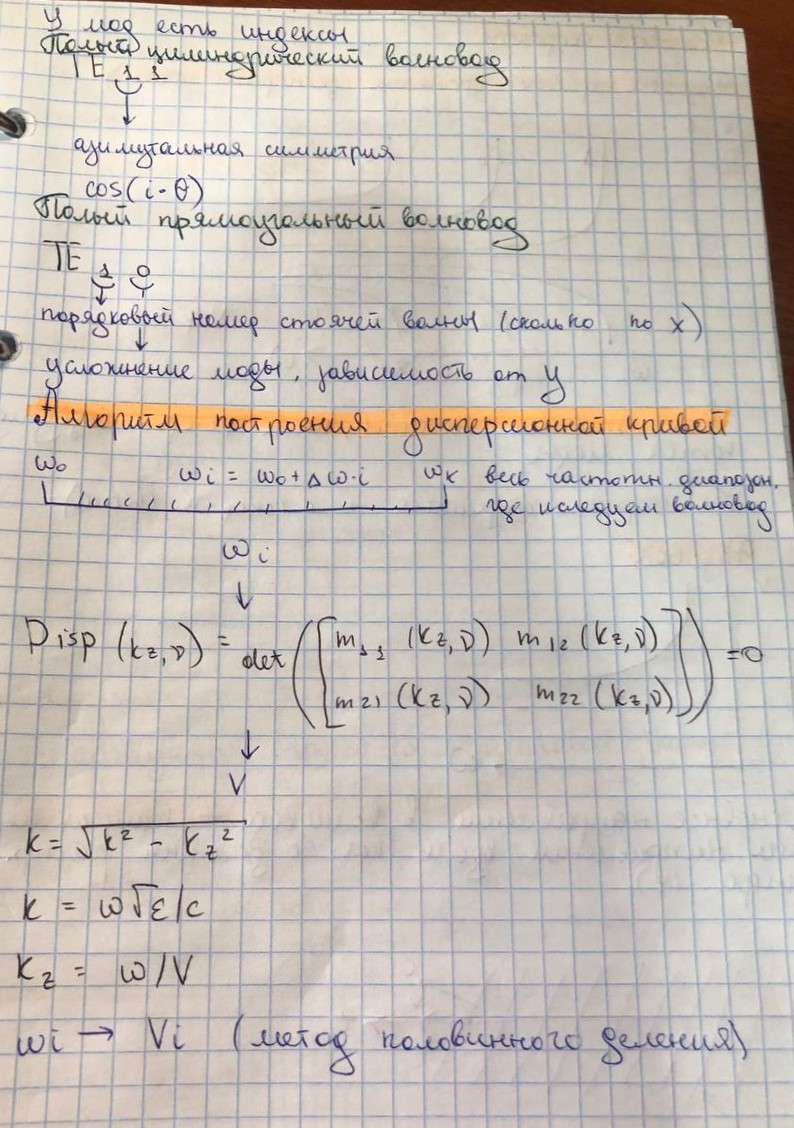 У мод есть индексы
Полый цилиндрический волновод
TE 1 1
↓
азимутальная симметрия
cos(i·θ)
Полый прямоугольный волновод
TE 1 0
порядковый номер стоячей волны (сколько по x)
усложнение моды, зависимость от y
Алгоритм построения дисперсионной кривой
ω₀ ωi = ω₀ + Δω·i ωк весь частотн. диапозон,
где иследуем волновод
ωi
↓
Disp (kz,ν) = det ([m11 (kz,ν) m12 (kz,ν)
m21 (kz,ν) m22 (kz,ν)]) =0
↓
V
k = √k² - kz²
k = ω√ε/c
kz = ω/V
ωi → Vi (метод половинного деления)